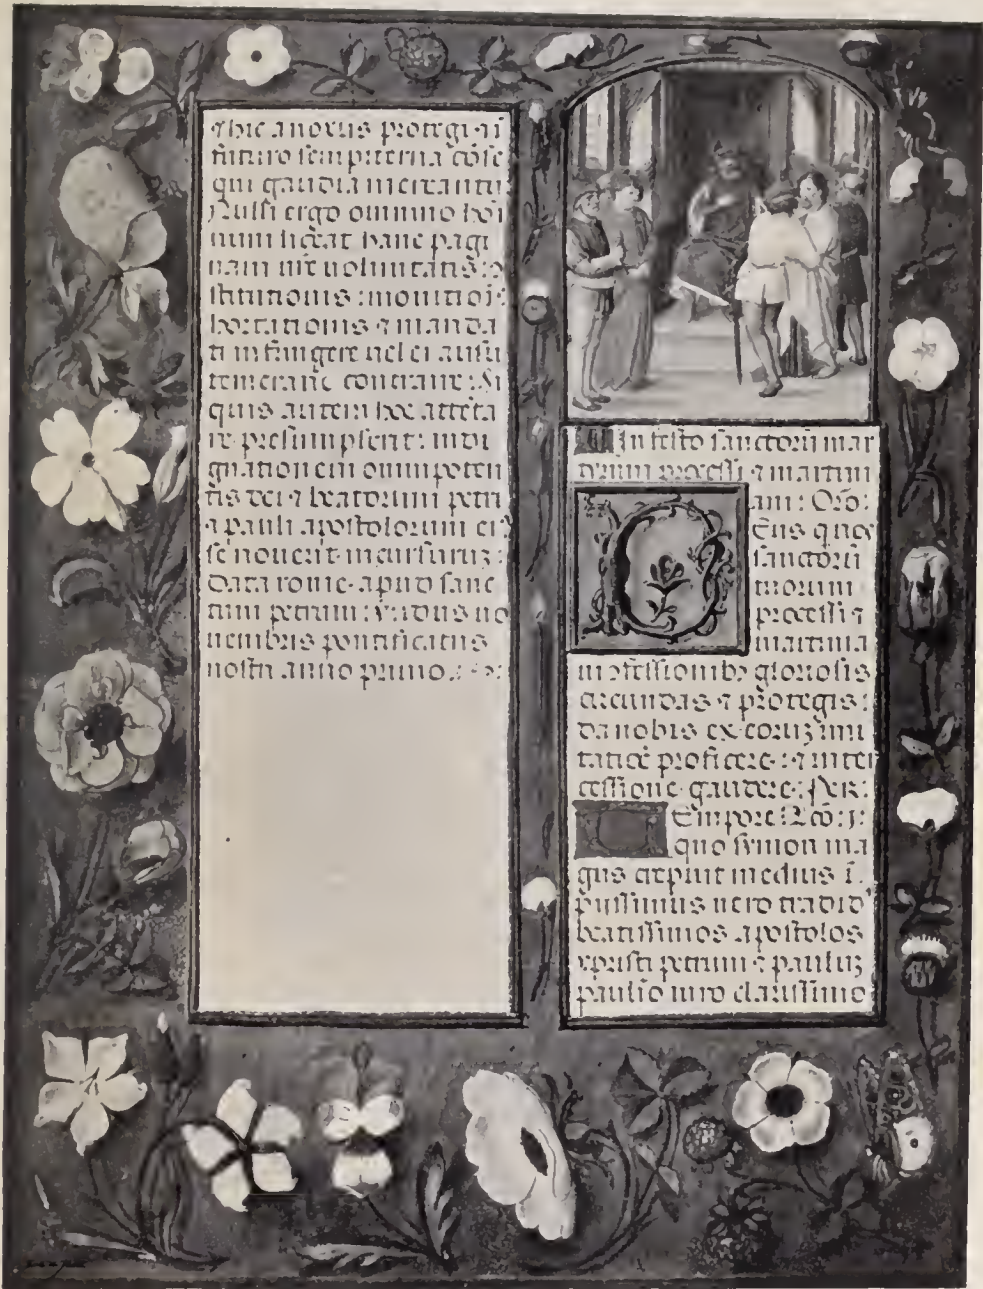 ⁊ hic a noxiis protegi ⁊ ī
futuro sempiterna cōse
qui gaudia mereantur
Nulli ergo omnino ho
minum liceat hanc pagi
nam nrē uoluntatis:
stitutionis: monitiōīs:
hortationis ⁊ manda
ti infringere uel ei ausu
temerario contraire: Si
quis autem hoc attēta
re presumpserit: indi
gnationem omnipoten
tis dei ⁊ beatorum petri
⁊ pauli apostolorum ei
se nouerit incursurum:
Data rome apud sanc
tum petrum: no
uembris pontificatus
nostri anno primo.
In festo sanctorū mar
tirum processi ⁊ martini
ani: Orō:
Eus qui
sanctorū
tuorum
processi ⁊
martinia
ni ꝯfessionibꝰ gloriosis
circundas ⁊ protegis:
da nobis ex eorum imi
tatiōe proficere: ⁊ inter
cessione gaudere: Per:
Empore Lco: j:
quo symon ma
gus crepuit medius ī
piissimus nero tradid
beatissimos apostolos
xpristi petrum ⁊ paulum
paulino uiro clarissimo